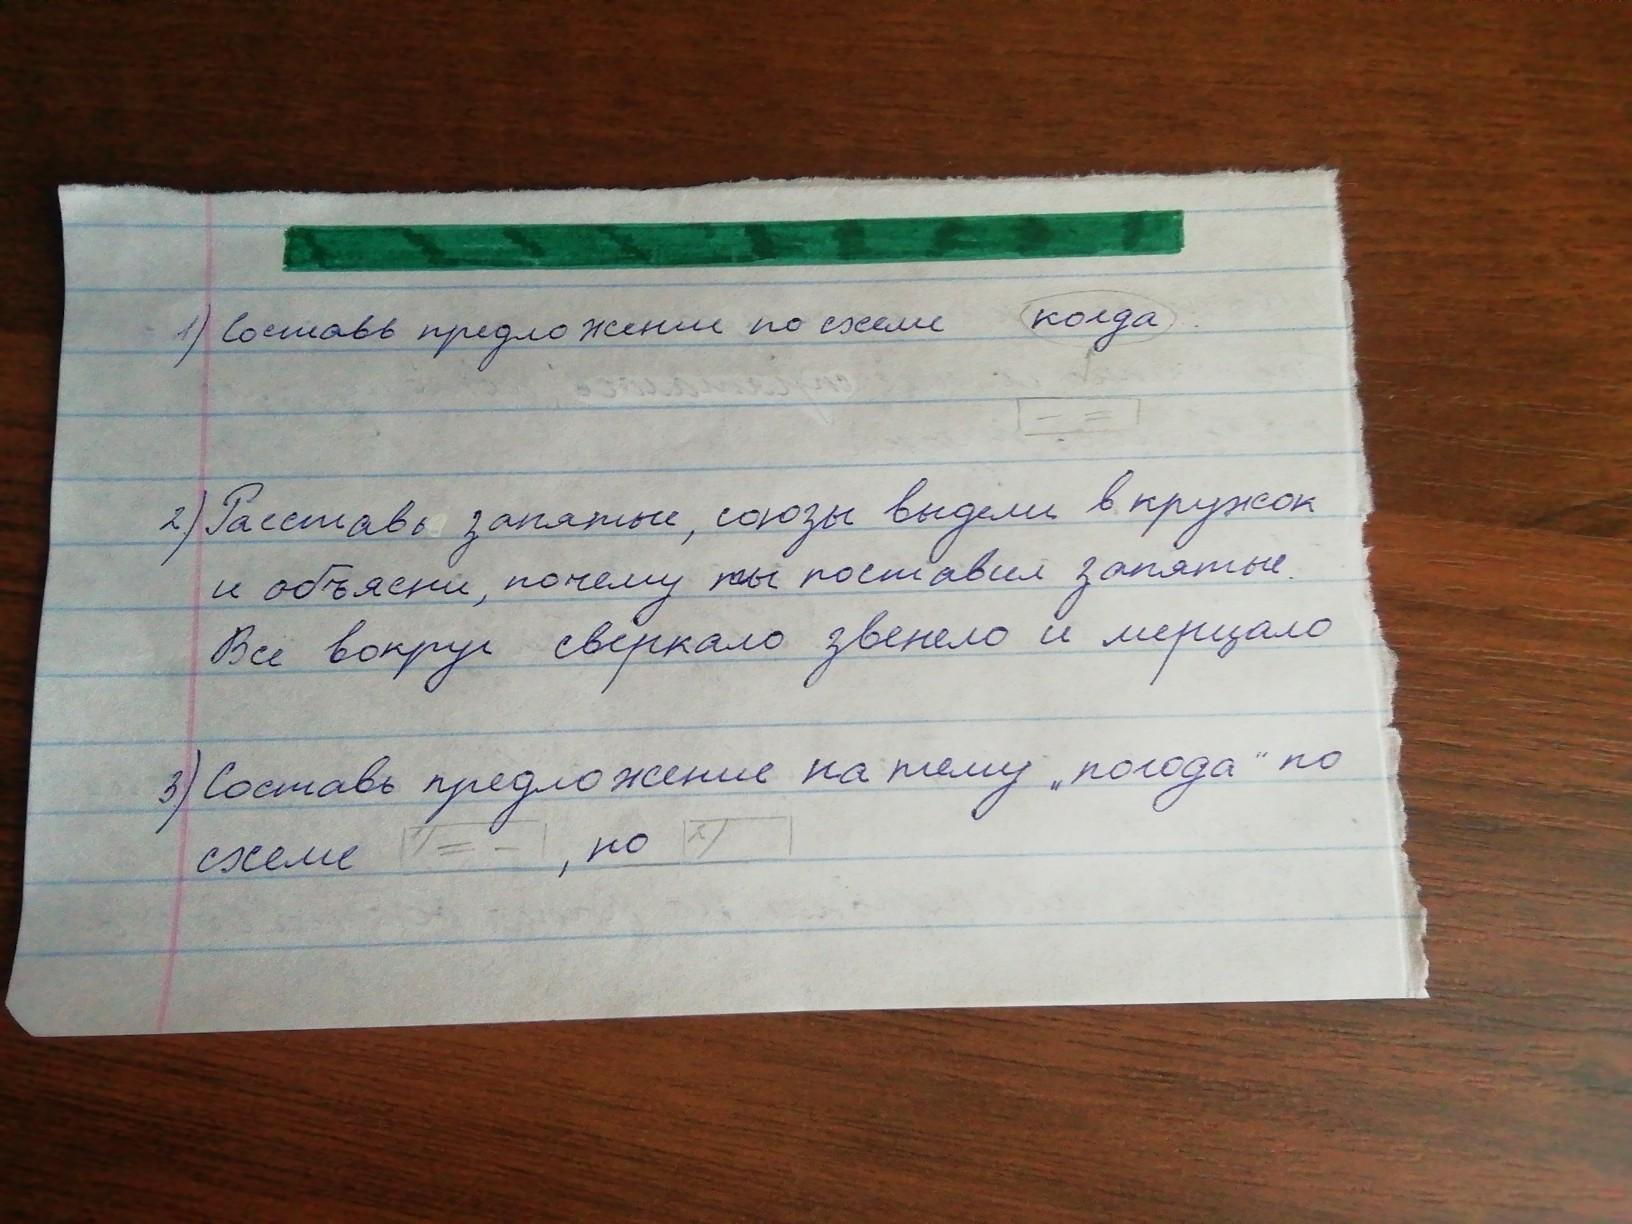 1) Составь предложение по схеме когда.
2) Расставь запятые, союзы выдели в кружок
и объясни, почему ты поставил запятые.
Все вокруг сверкало звенело и мерцало
3) Составь предложение на тему „погода“ по
схеме 1) = - , но 2)